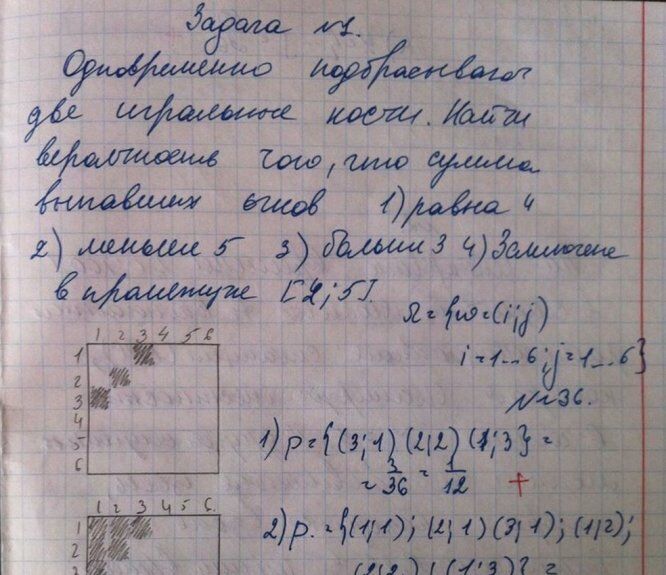 Задача №1.
Одновременно подбрасывают
две игральные кости. Найти
вероятность того, что сумма
выпавших очков 1) равна 4
2) меньше 5 3) больше 3 4) Заключена
в промежутке [2;5].
Ω={ω=(i;j)
i=1...6;j=1...6}
N=36.
1 2 3 4 5 6
1
2
3
4
5
6
1) P={(3;1) (2;2) (1;3} =
= 3/36 = 1/12 +
1 2 3 4 5 6.
1
2
3
2) P.={(1;1); (2;1) (3;1); (1;2);
(2;2) ; (1;3)} =